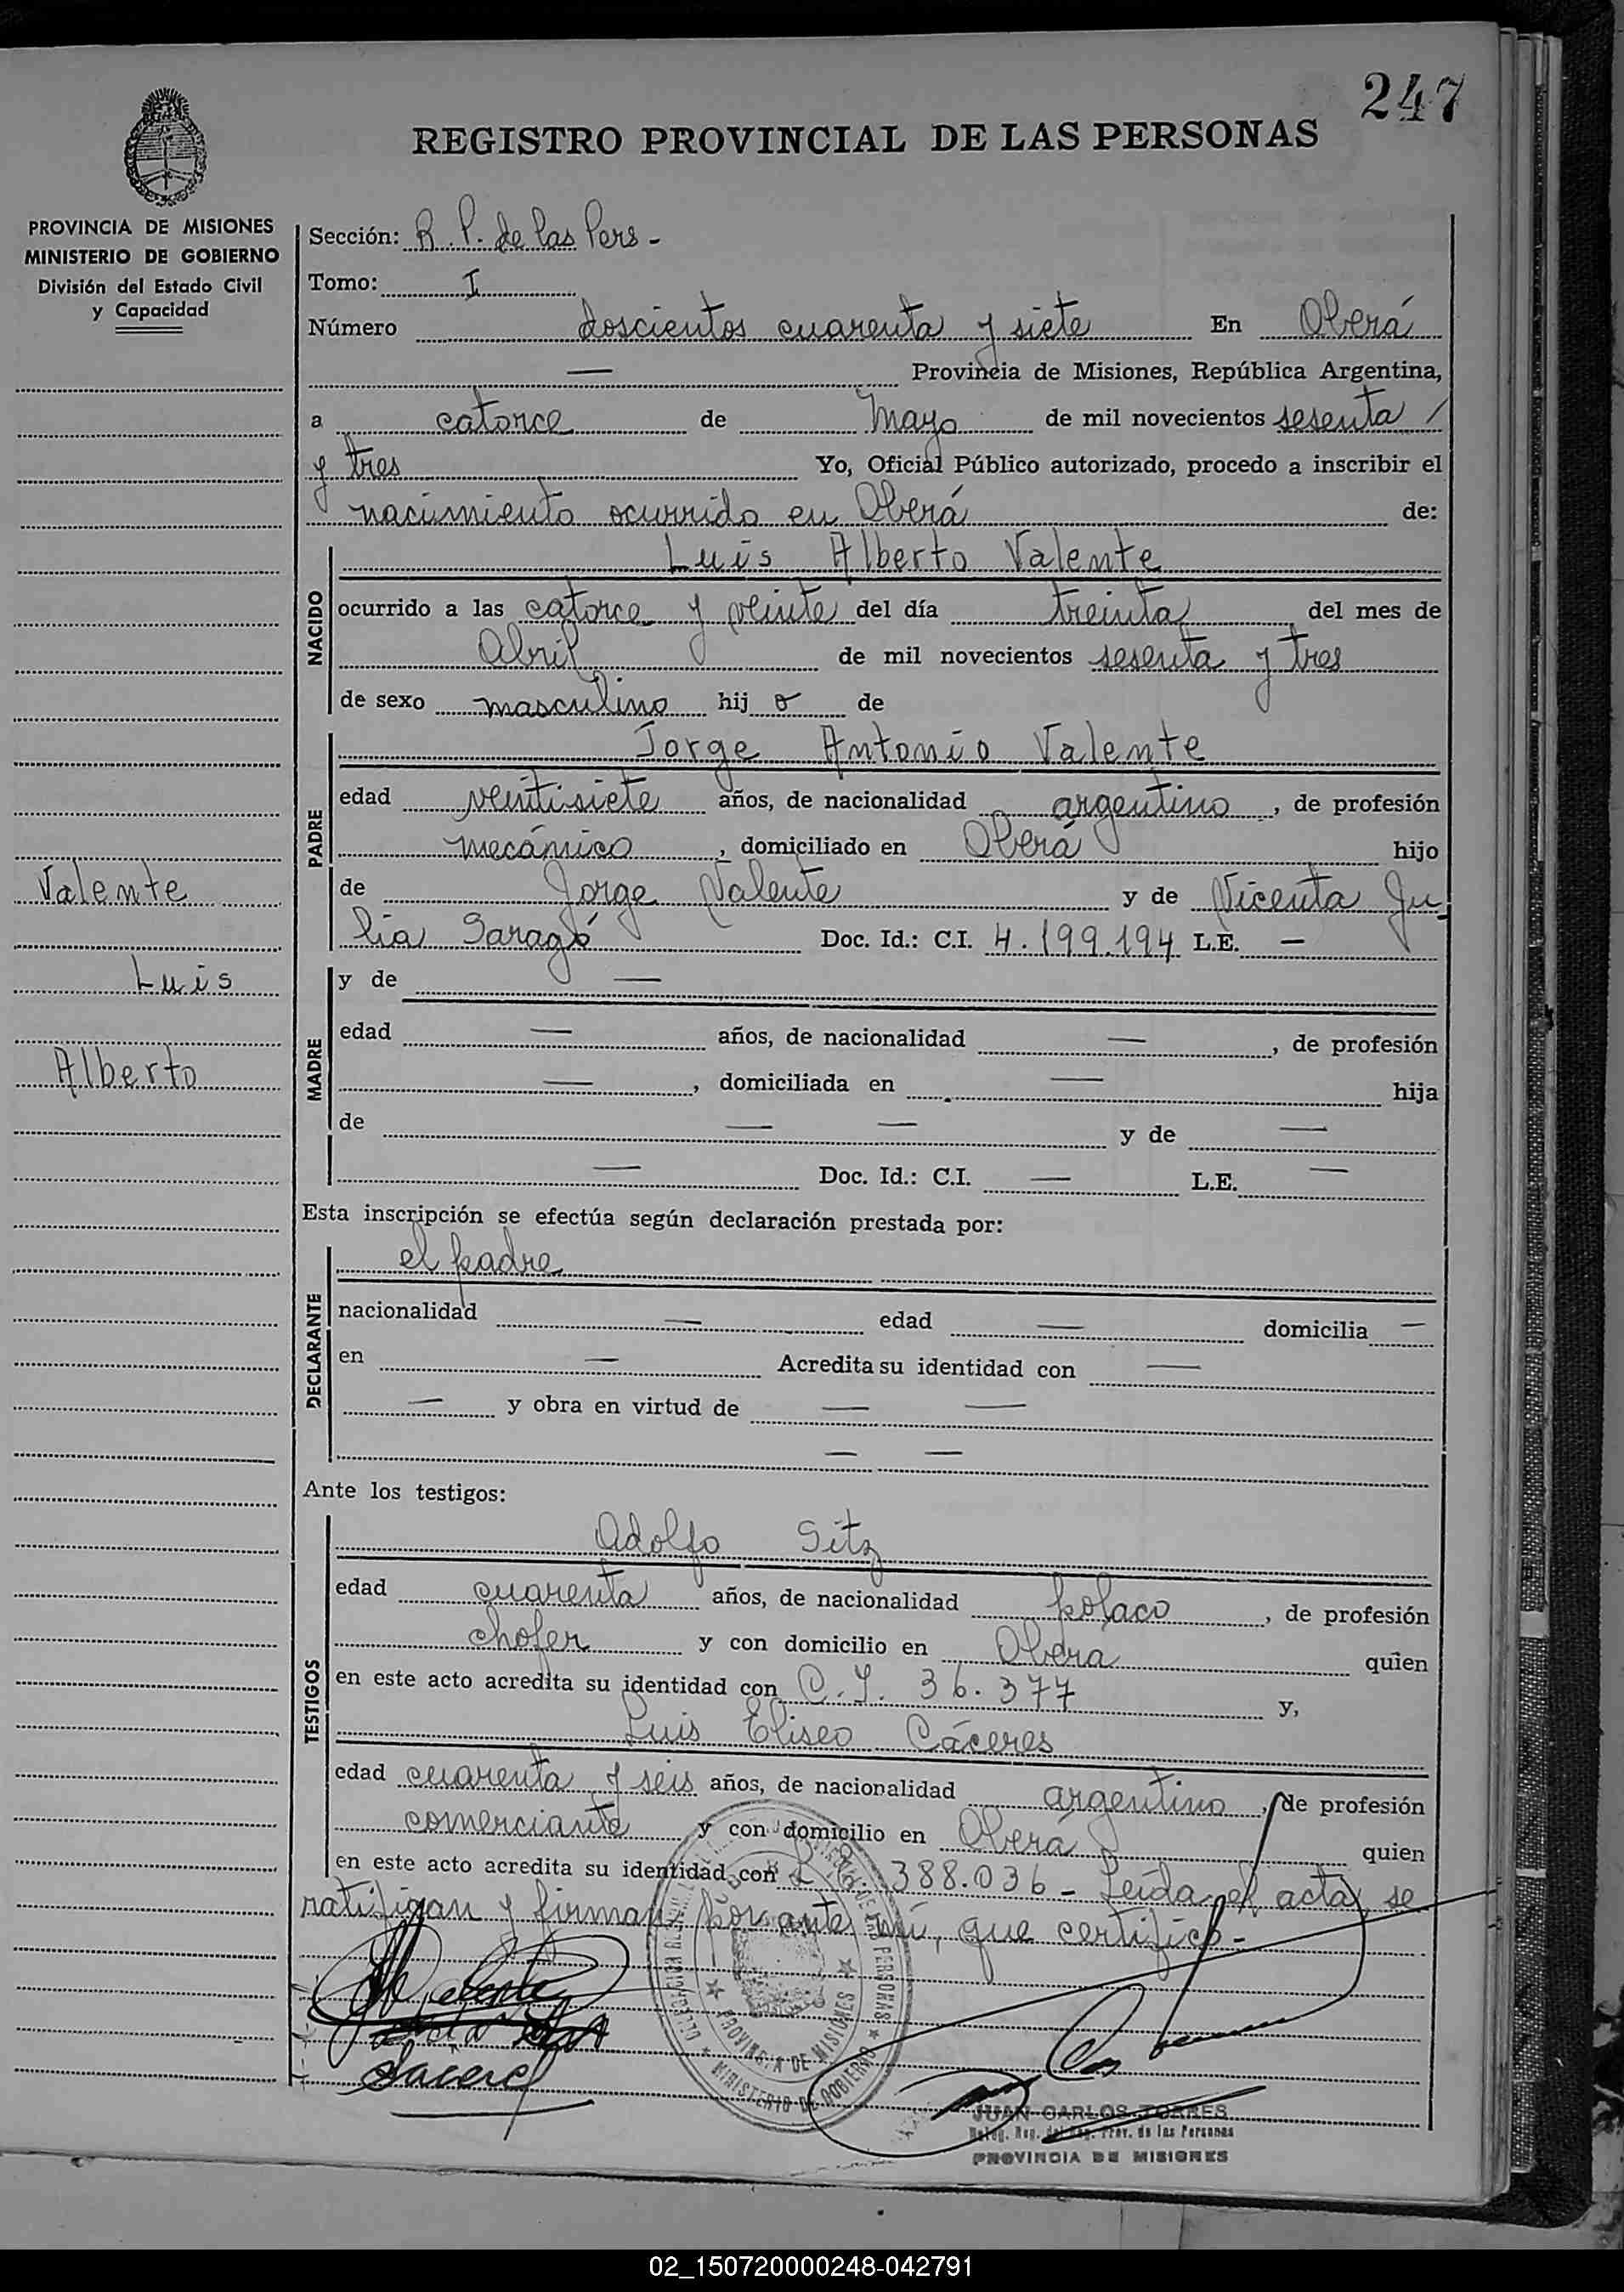 247
REGISTRO PROVINCIAL DE LAS PERSONAS
PROVINCIA DE MISIONES
MINISTERIO DE GOBIERNO
División del Estado Civil
y Capacidad
Sección: R. P. de las Pers -
Tomo: I
Número doscientos cuarenta y siete En Oberá
— Provincia de Misiones, República Argentina,
a catorce de Mayo de mil novecientos sesenta /
y tres Yo, Oficial Público autorizado, procedo a inscribir el
nacimiento ocurrido en Oberá de:
NACIDO
Luis Alberto Valente
ocurrido a las catorce y veinte del día treinta del mes de
Abril de mil novecientos sesenta y tres
de sexo masculino hij o de
PADRE
Jorge Antonio Valente
edad veintisiete años, de nacionalidad argentino, de profesión
mecánico, domiciliado en Oberá hijo
de Jorge Valente y de Vicenta Ju-
lia Saragó Doc. Id.: C.I. 4.199.194 L.E. —
Valente
Luis
Alberto
MADRE
y de —
edad — años, de nacionalidad —, de profesión
—, domiciliada en — hija
de — — y de —
— Doc. Id.: C.I. — L.E. —
Esta inscripción se efectúa según declaración prestada por:
DECLARANTE
el padre
nacionalidad — edad — domicilia —
en — Acredita su identidad con —
— y obra en virtud de — —
— —
Ante los testigos:
TESTIGOS
Adolfo Sitz
edad cuarenta años, de nacionalidad polaco, de profesión
chofer y con domicilio en Obera quien
en este acto acredita su identidad con C.I. 36.377 y,
Luis Eliseo Cáceres
edad cuarenta y seis años, de nacionalidad argentino, de profesión
comerciante y con domicilio en Oberá quien
en este acto acredita su identidad con 388.036 - Leída el acta, se
ratifican y firman por ante mí, que certifico -
Valente
Caceres
PROVINCIA DE MISIONES
MINISTERIO DE GOBIERNO
JUAN CARLOS TORRES
Prov. de las Personas
PROVINCIA DE MISIONES
02_150720000248-042791